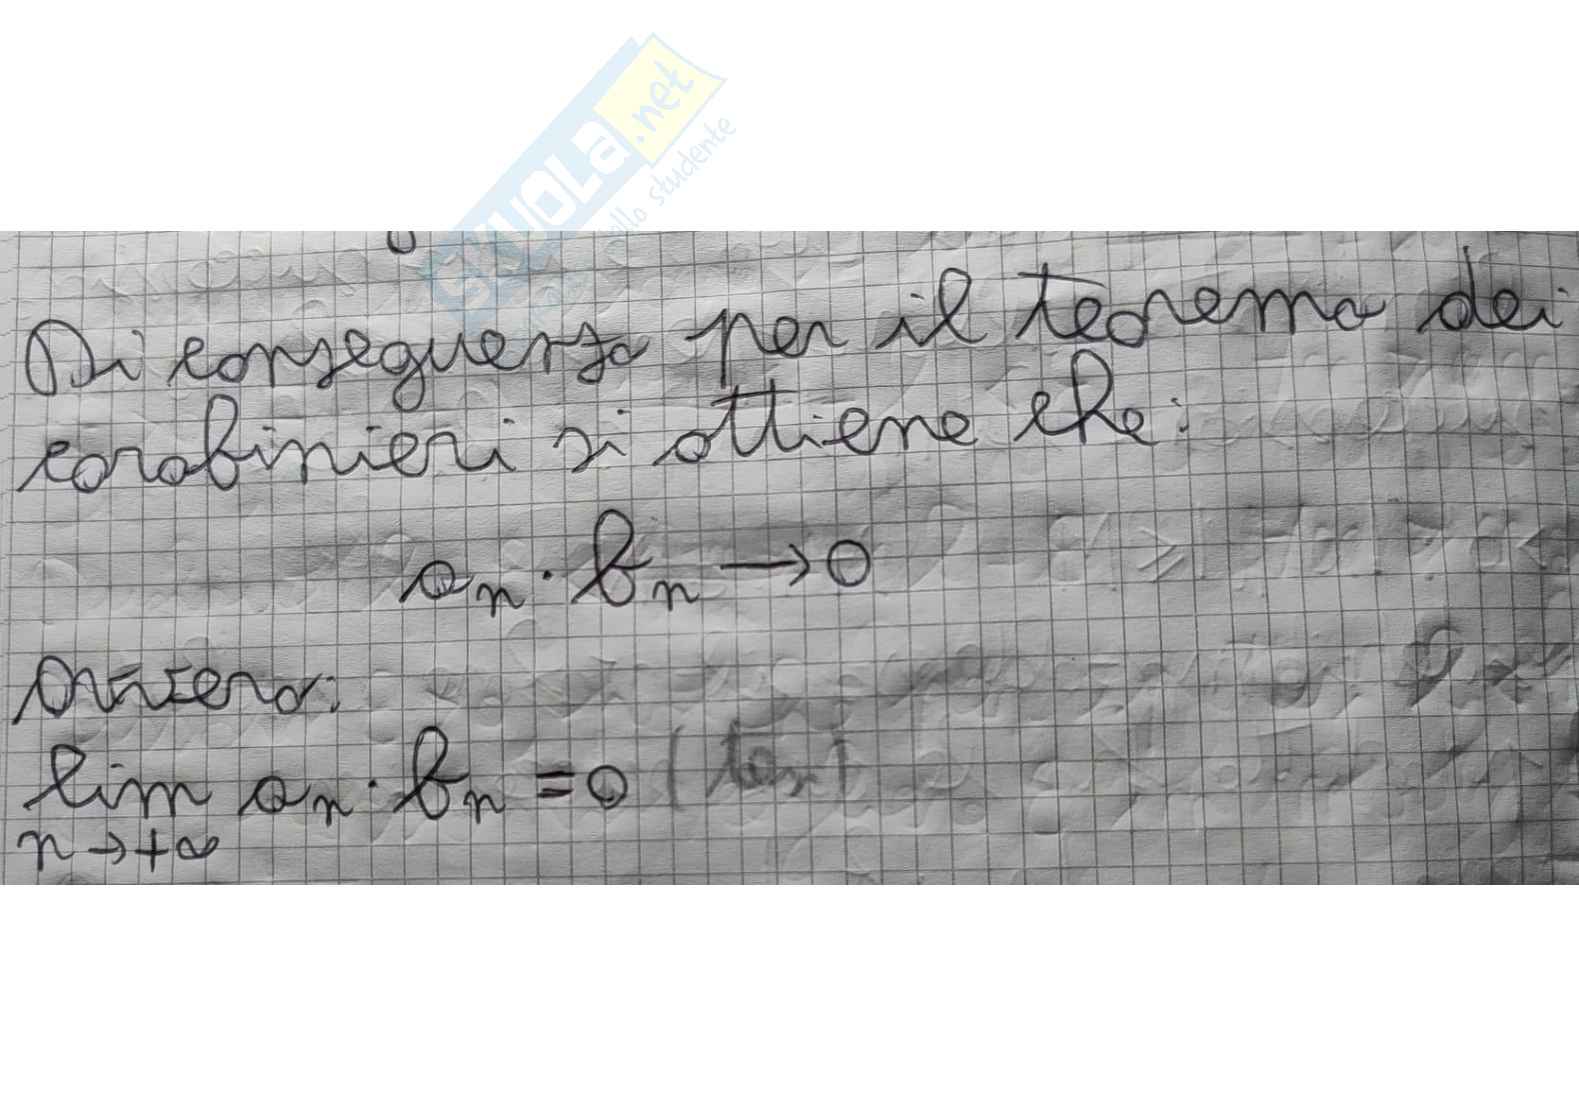 SKUOLA.net
dello studente
Di conseguenza per il teorema dei
carabinieri si ottiene che:
aₙ · bₙ → 0
ovvero:
lim aₙ · bₙ = 0 (tesi)
n → +∞